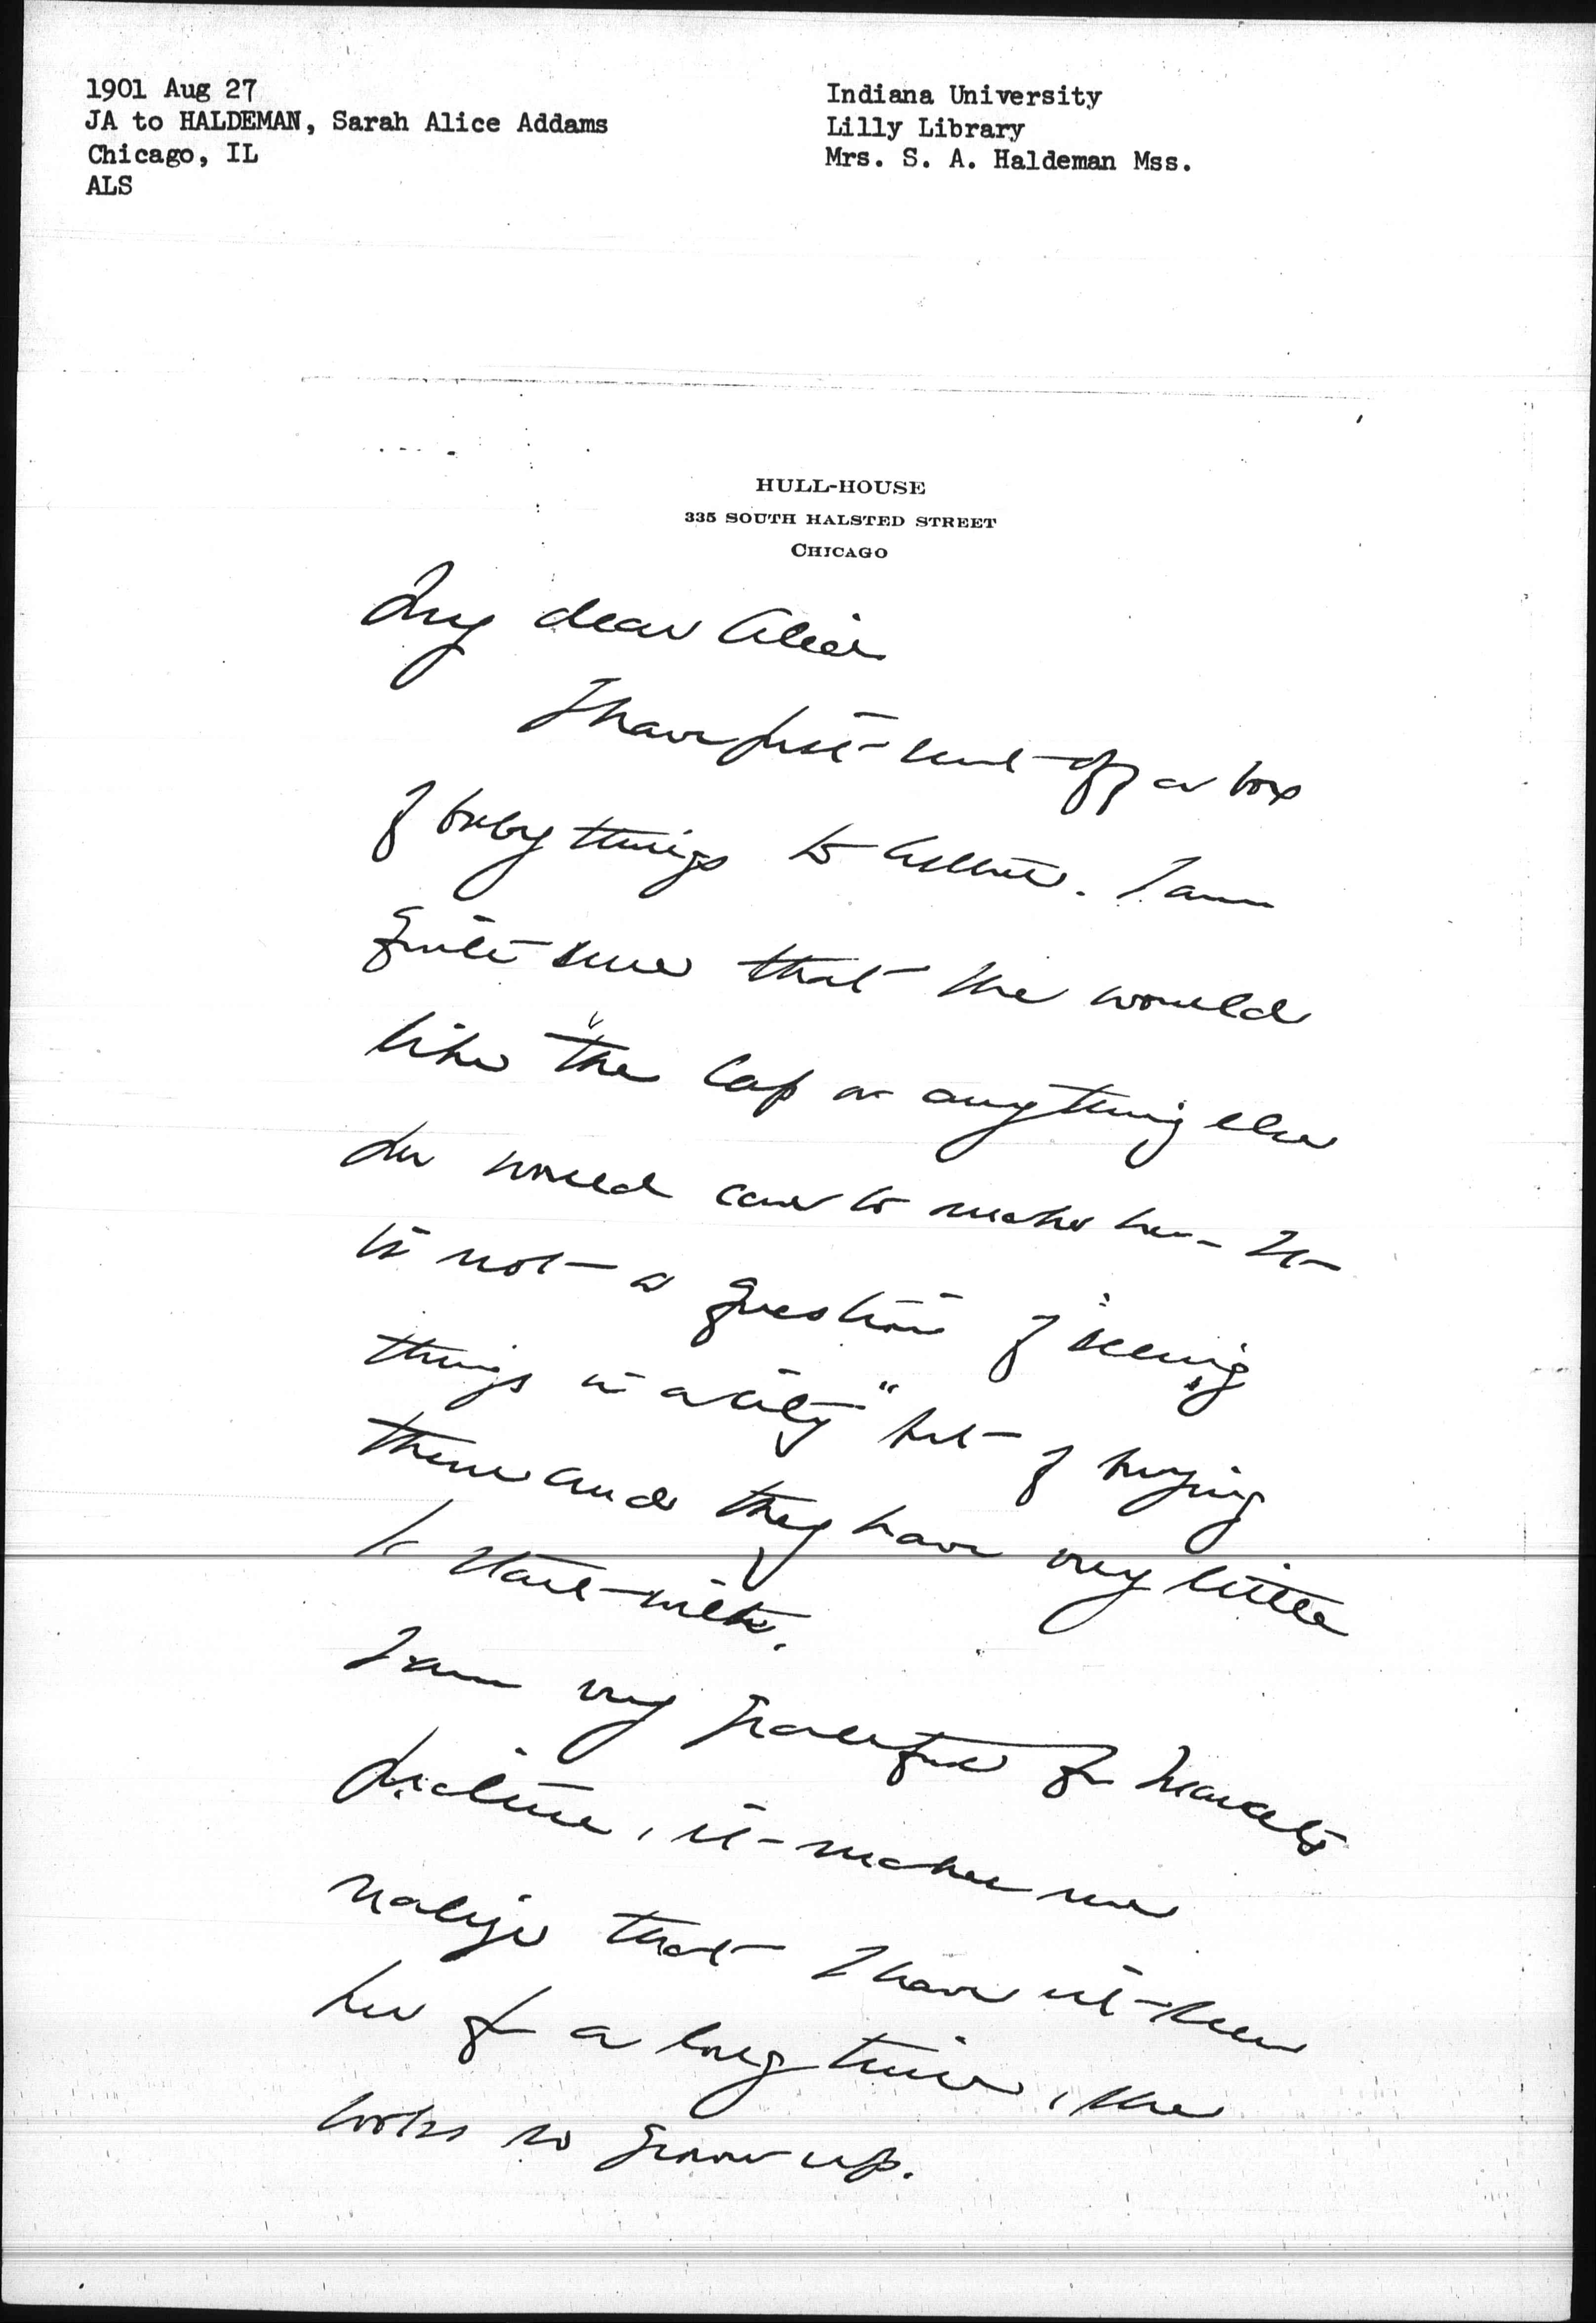 1901 Aug 27
JA to HALDEMAN, Sarah Alice Addams
Chicago, IL
ALS
Indiana University
Lilly Library
Mrs. S. A. Haldeman Mss.
HULL-HOUSE
335 SOUTH HALSTED STREET
CHICAGO
My dear Alice
I have just sent off a box
of baby things to. I am
quite sure that she would
like the cap or anything else
would care to make her. It
is not a question of "seeing
things in a city" but of buying
them and they have very little
to start with.
I am very grateful for Marcet's
picture, it makes me
realize that I have not seen
her for a long time, she
looks so grown up.